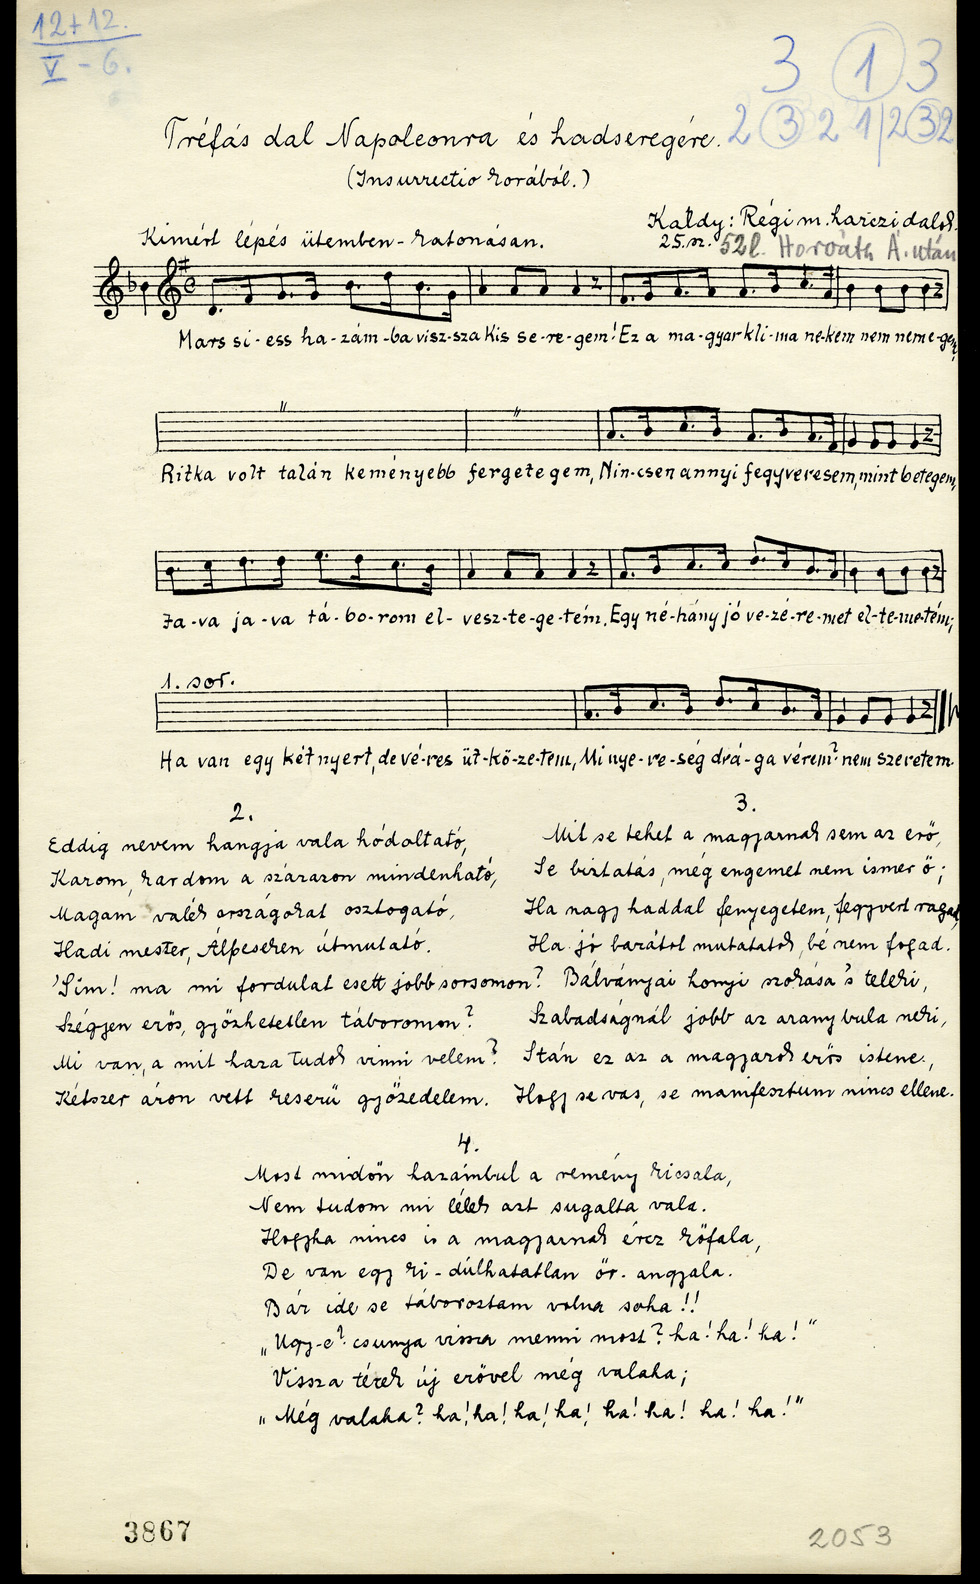 12+12.
V - 6.
3 1 3
2 3 2 1|2 3 2
Tréfás dal Napoleonra és hadseregére.
(Insurrectio korából.)
Káldy: Régi m. harczi dalok.
25.sz. 52l. Horváth Á. után
Kimért lépés ütemben - katonásan.
Mars si-ess ha-zám-ba visz-sza Kis se-re-gem! Ez a ma-gyar kli-ma ne-kem nem nem e-gem,
Ritka volt talán keményebb fergetegem, Nin-csen annyi fegyveresem, mint betegem,
Ja-va ja-va tá-bo-rom el-vesz-te-ge-tém. Egy né-hány jó ve-zé-re-met el-te-me-tém;
1. sor.
Ha van egy két nyert, de vé-res üt-kö-ze-tem, Mi nye-re-ség drá-ga vérem? nem szeretem.
2.
Eddig nevem hangja vala hódoltató,
Karom, kardom a szárazon mindenható,
Magam valék országokat osztogató,
Hadi mester, Álpeseken útmutató.
'Sim! ma mi fordulat esett jobb sorsomon?
Szégyen erős, győzhetetlen táboromon?
Mi van, a mit haza tudok vinni velem?
Kétszer áron vett keserű győzedelem.
3.
Mit se tehet a magyarnak sem az erő,
Se biztatás, még engemet nem ismer ő;
Ha nagy haddal fenyegetem, fegyvert ragad,
Ha jó barátot mutatatok, bé nem fogad.
Bálványai honyi szokása 's teleki,
Szabadságnál jobb az arany bula neki,
Stán ez az a magyarok erős istene,
Hogy se vas, se manifesztum nincs ellene.
4.
Most midőn hazámbul a remény kicsala,
Nem tudom mi lélek azt sugalta vala.
Hogyha nincs is a magyarnak ércz kőfala,
De van egy ki-dúlhatatlan őr-angyala.
Bár ide se táboroztam volna soha!!
„Ugy-e? csunya vissza menni most? ha! ha! ha!"
Vissza térek új erővel még valaha;
„Még valaha? ha! ha! ha! ha! ha! ha! ha! ha!"
3867
2053